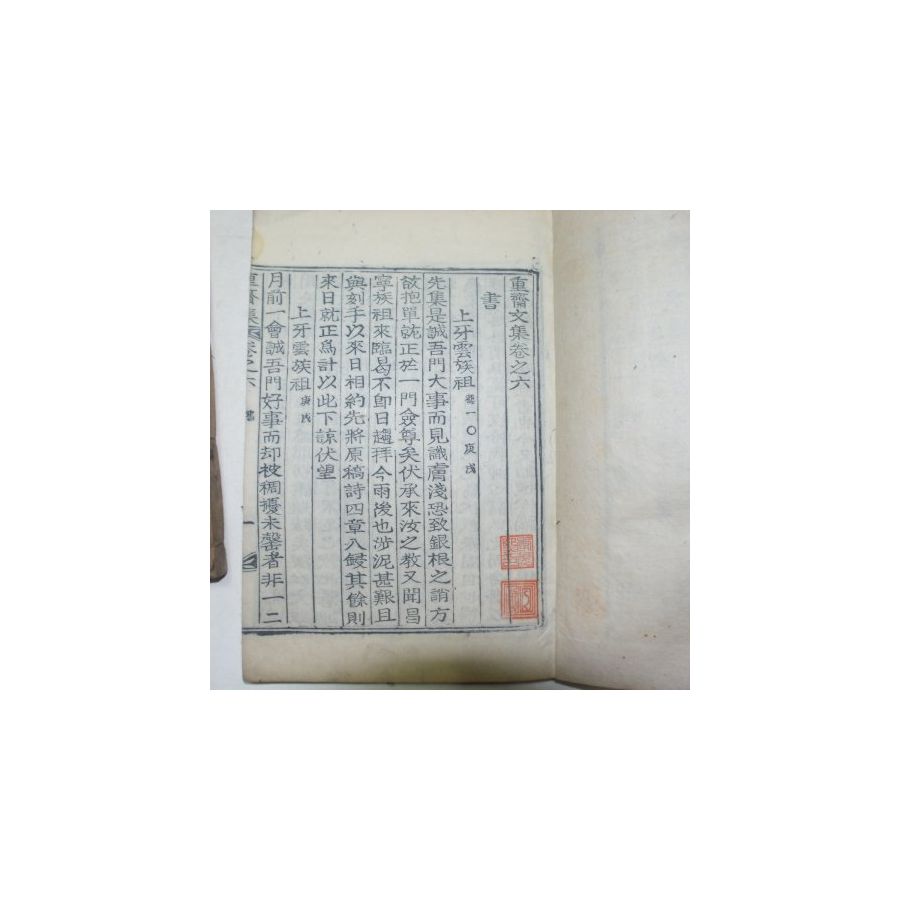 重齋文集卷之六
書
上牙雲族祖 一〇庚戌
先集是誠吾門大事而見識膚淺恐致銀根之誚方
故抱單就正於一門僉尊矣伏承來汝之教又聞昌
寧族祖來臨曷不卽日趨拜今雨後也涉泥甚艱且
與刻手以來日相約先將原稿詩四章入鋟其餘則
來日就正爲計以此下諒伏望
上牙雲族祖 庚戌
月前一會誠吾門好事而却被稠擾未罄者非一二
重齋集 卷之六 書 一